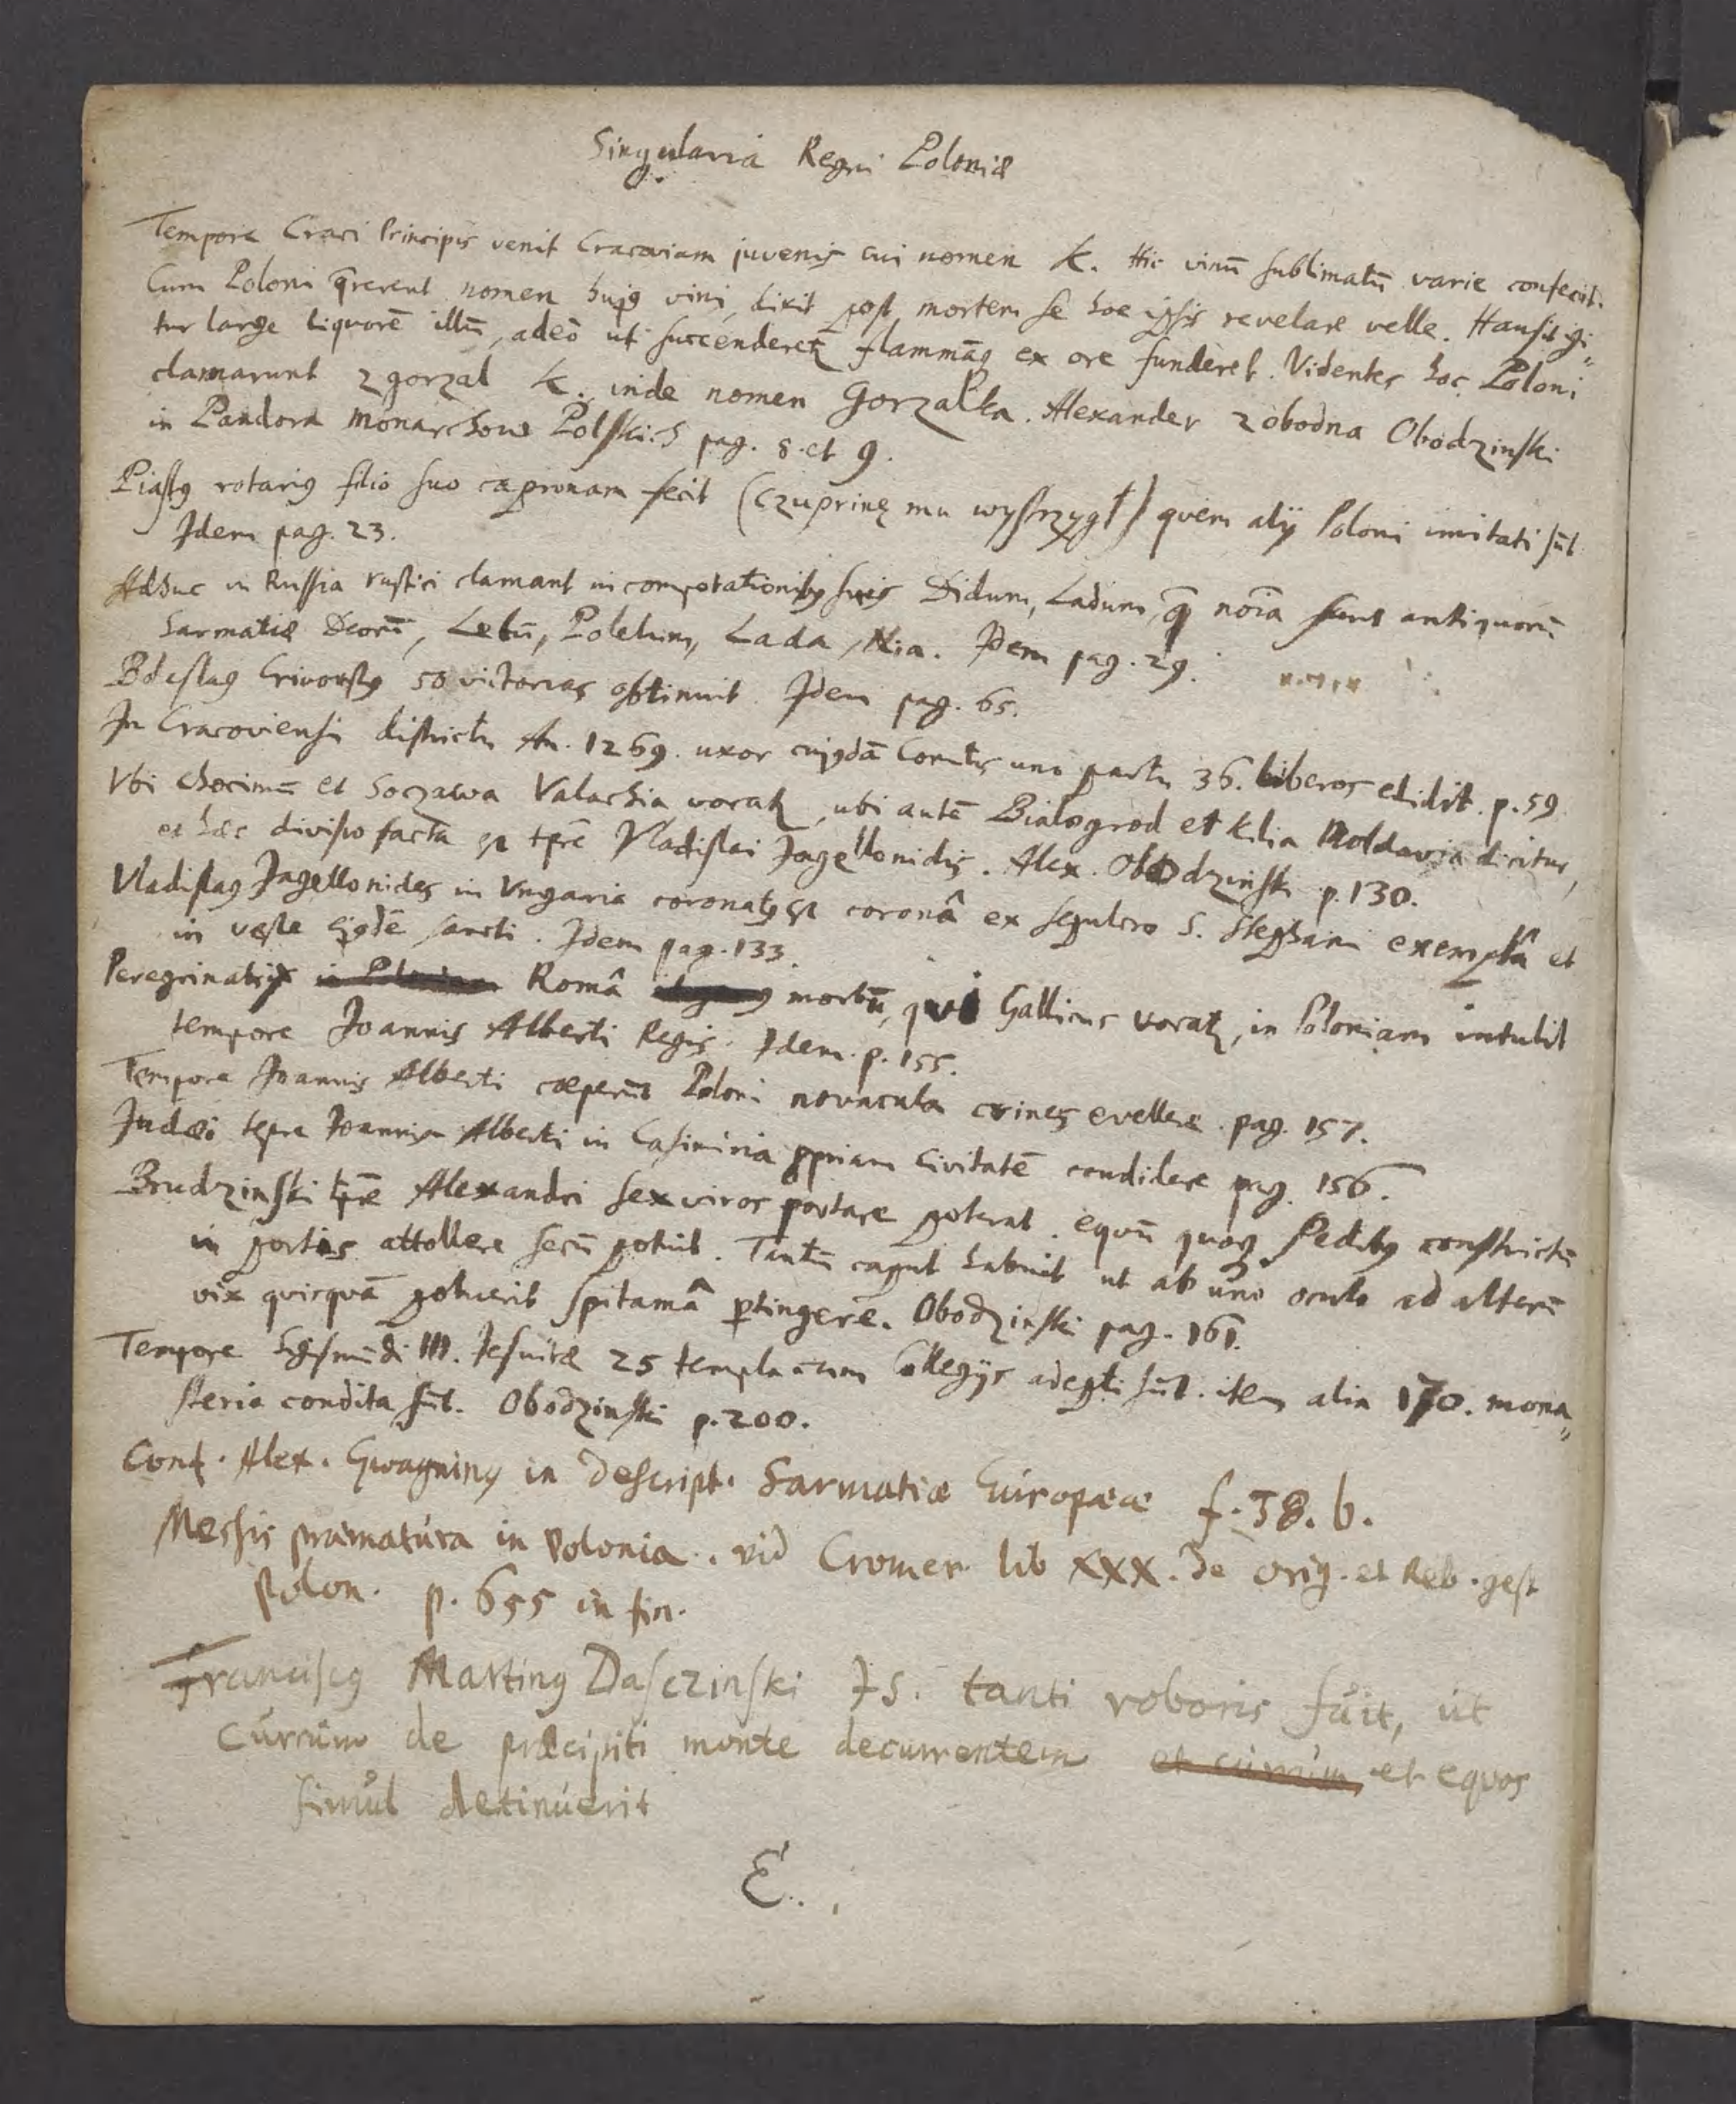 Singularia Regni Poloniæ
Tempore Craci Principis venit Cracoviam juvenis cui nomen K. Hic vinū sublimatū varie confecit.
Cum Poloni q̄rerent nomen hujꝰ vini, dixit post mortem se hoc ipsis revelare velle. Hausit igi-
tur large liquorē illū, adeò ut succenderetʳ flammāq; ex ore funderet. Videntes hoc Poloni
clamarunt zgorzal K. inde nomen Gorzałka. Alexander z obodna Obodzinski
in Pandora Monarchow Polskich pag. 8. et 9.
Piastꝰ rotariꝰ filio suo capronam fecit (Czuprinę mu wystrzygł) quem alij Poloni imitati sūt
Idem pag. 23.
Adhuc in Russia rustici clamant in compotationibꝰ suis Didum, Ladum, q̄ noīa sunt antiquorū
Sarmatiæ Deorū, Lelū, Polelum, Lada, Nia. Idem pag. 29.
Bolestaꝰ Crivoustꝰ 50 victorias obtinuit. Idem pag. 65.
In Cracoviensi districtu An. 1269. uxor cujꝰdā Comitis uno partu 36. liberos edidit. p. 59
Vbi Chocimū et Soczawa Valachia vocatʳ, ubi autē Bialogrod et Kilia Moldavia dicitur,
et hæc divisio facta ē tp̄re Vladislai Jagellonidis. Alex. Obodzinski p. 130.
Vladislaꝰ Jagellonides in Vngaria coronatꝰ ē coronâ ex sepulcro S. Stephani exemptâ et
in veste ejꝰdē sancti. Idem pag. 133.
Peregrinatrix in Româ morbū, qui Gallicus vocatʳ, in Poloniam intulit
tempore Joannis Alberti Regis. Idem. p. 155.
Tempore Joannis Alberti cœperūt Poloni novacula crines evellere. pag. 157.
Judæi tp̄re Joannis Alberti in Casimiria ꝓpriam civitatē condidere pag. 156.
Brudzinski tp̄re Alexandri sex viros portare poterat. equū quoq; pedibꝰ constrictū
in portis attollere secū potuit. Tantū caput habuit ut ab uno oculo ad alterū
vix quisquā potuerit spitamâ ꝑtingere. Obodzinski pag. 161.
Tempore Sigismūdi III. Jesuitæ 25 templa cum Collegijs adepti sūt. item alia 170. mona-
steria condita sūt. Obodzinski p. 200.
Conf. Alex. Gwagninꝰ in Descript. Sarmatiæ Europææ f. 38. b.
Messis præmatura in Polonia. vid Cromer lib XXX. de orig. et Reb. gest
Polon. p. 655 in fin.
Franciscꝰ Martinꝰ Dasczinski JS. tanti roboris fuit, ut
currum de præcipiti monte decurrentem et currum et equos
simul detinuerit
E..